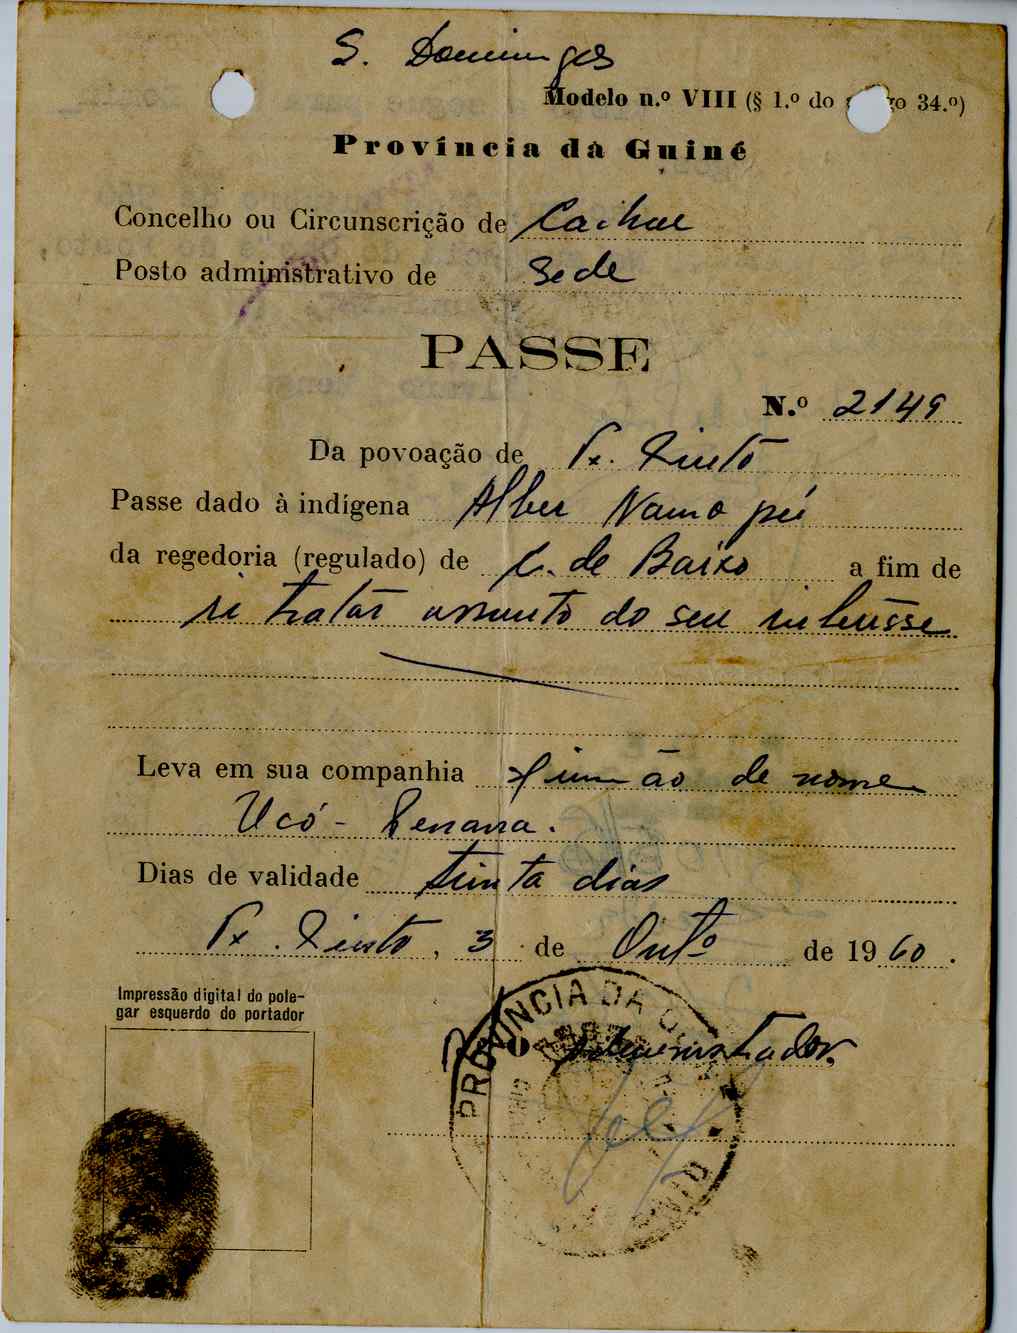 S. Domingos
Modelo n.º VIII (§ 1.º do go 34.º)
Província da Guiné
Concelho ou Circunscrição de
Posto administrativo de Sede
PASSE
N.º 2149
Da povoação de Tx. Pinto
Passe dado à indígena
da regedoria (regulado) de C. de Baixo a fim de
ir tratar assunto do seu
Leva em sua companhia de nome
Ucó -
Dias de validade trinta dias
Tx. Pinto, 3 de Outº de 1960.
Impressão digital do pole-
gar esquerdo do portador
PROVÍNCIA DA
O Administrador,